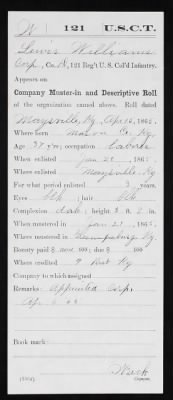 W 121 U.S.C.T.
Lewis Williams
Corp., Co. D, 121 Reg't U. S. Col'd Infantry.
Appears on
Company Muster-in and Descriptive Roll
of the organization named above. Roll dated
Maysville, Ky, Apr 10, 1865.
Where born Mason Co. Ky.
Age 37 y'rs; occupation Laborer
When enlisted Jan 21, 1865.
Where enlisted Maysville, Ky.
For what period enlisted 3 years.
Eyes blk; hair blk
Complexion dark; height 5 ft. 2 in.
When mustered in Jan 21, 1865.
Where mustered in Ky
Bounty paid $ 100; due $ 100
Where credited 9 Dist Ky
Company to which assigned
Remarks: Appointed Corp.
Apr 6 65
Book mark:
Copyist.